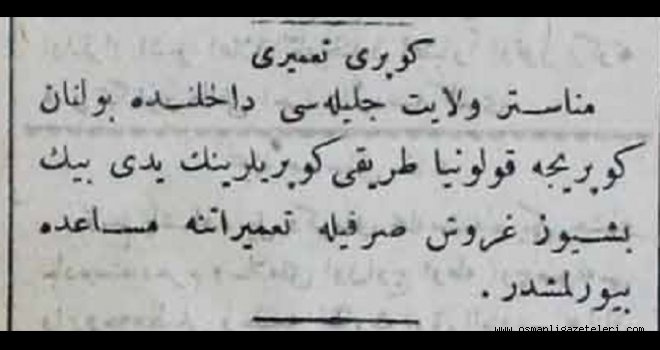 کوپری تعمیری
مناستر ولایت جلیله‌سی داخلنده بولنان
کوپریجه قولونیا طریقی کوپریلرینك یدی بیك
بشیوز غروش صرفیله تعمیراتنه مساعده
بیورلمشدر .
www.osmanligazeteleri.com